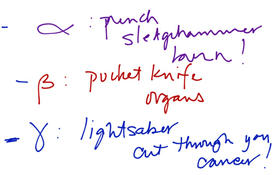 - α : punch
sledgehammer
burn!
- β : pocket knife
organs
- γ : lightsaber
cut through you
cancer!